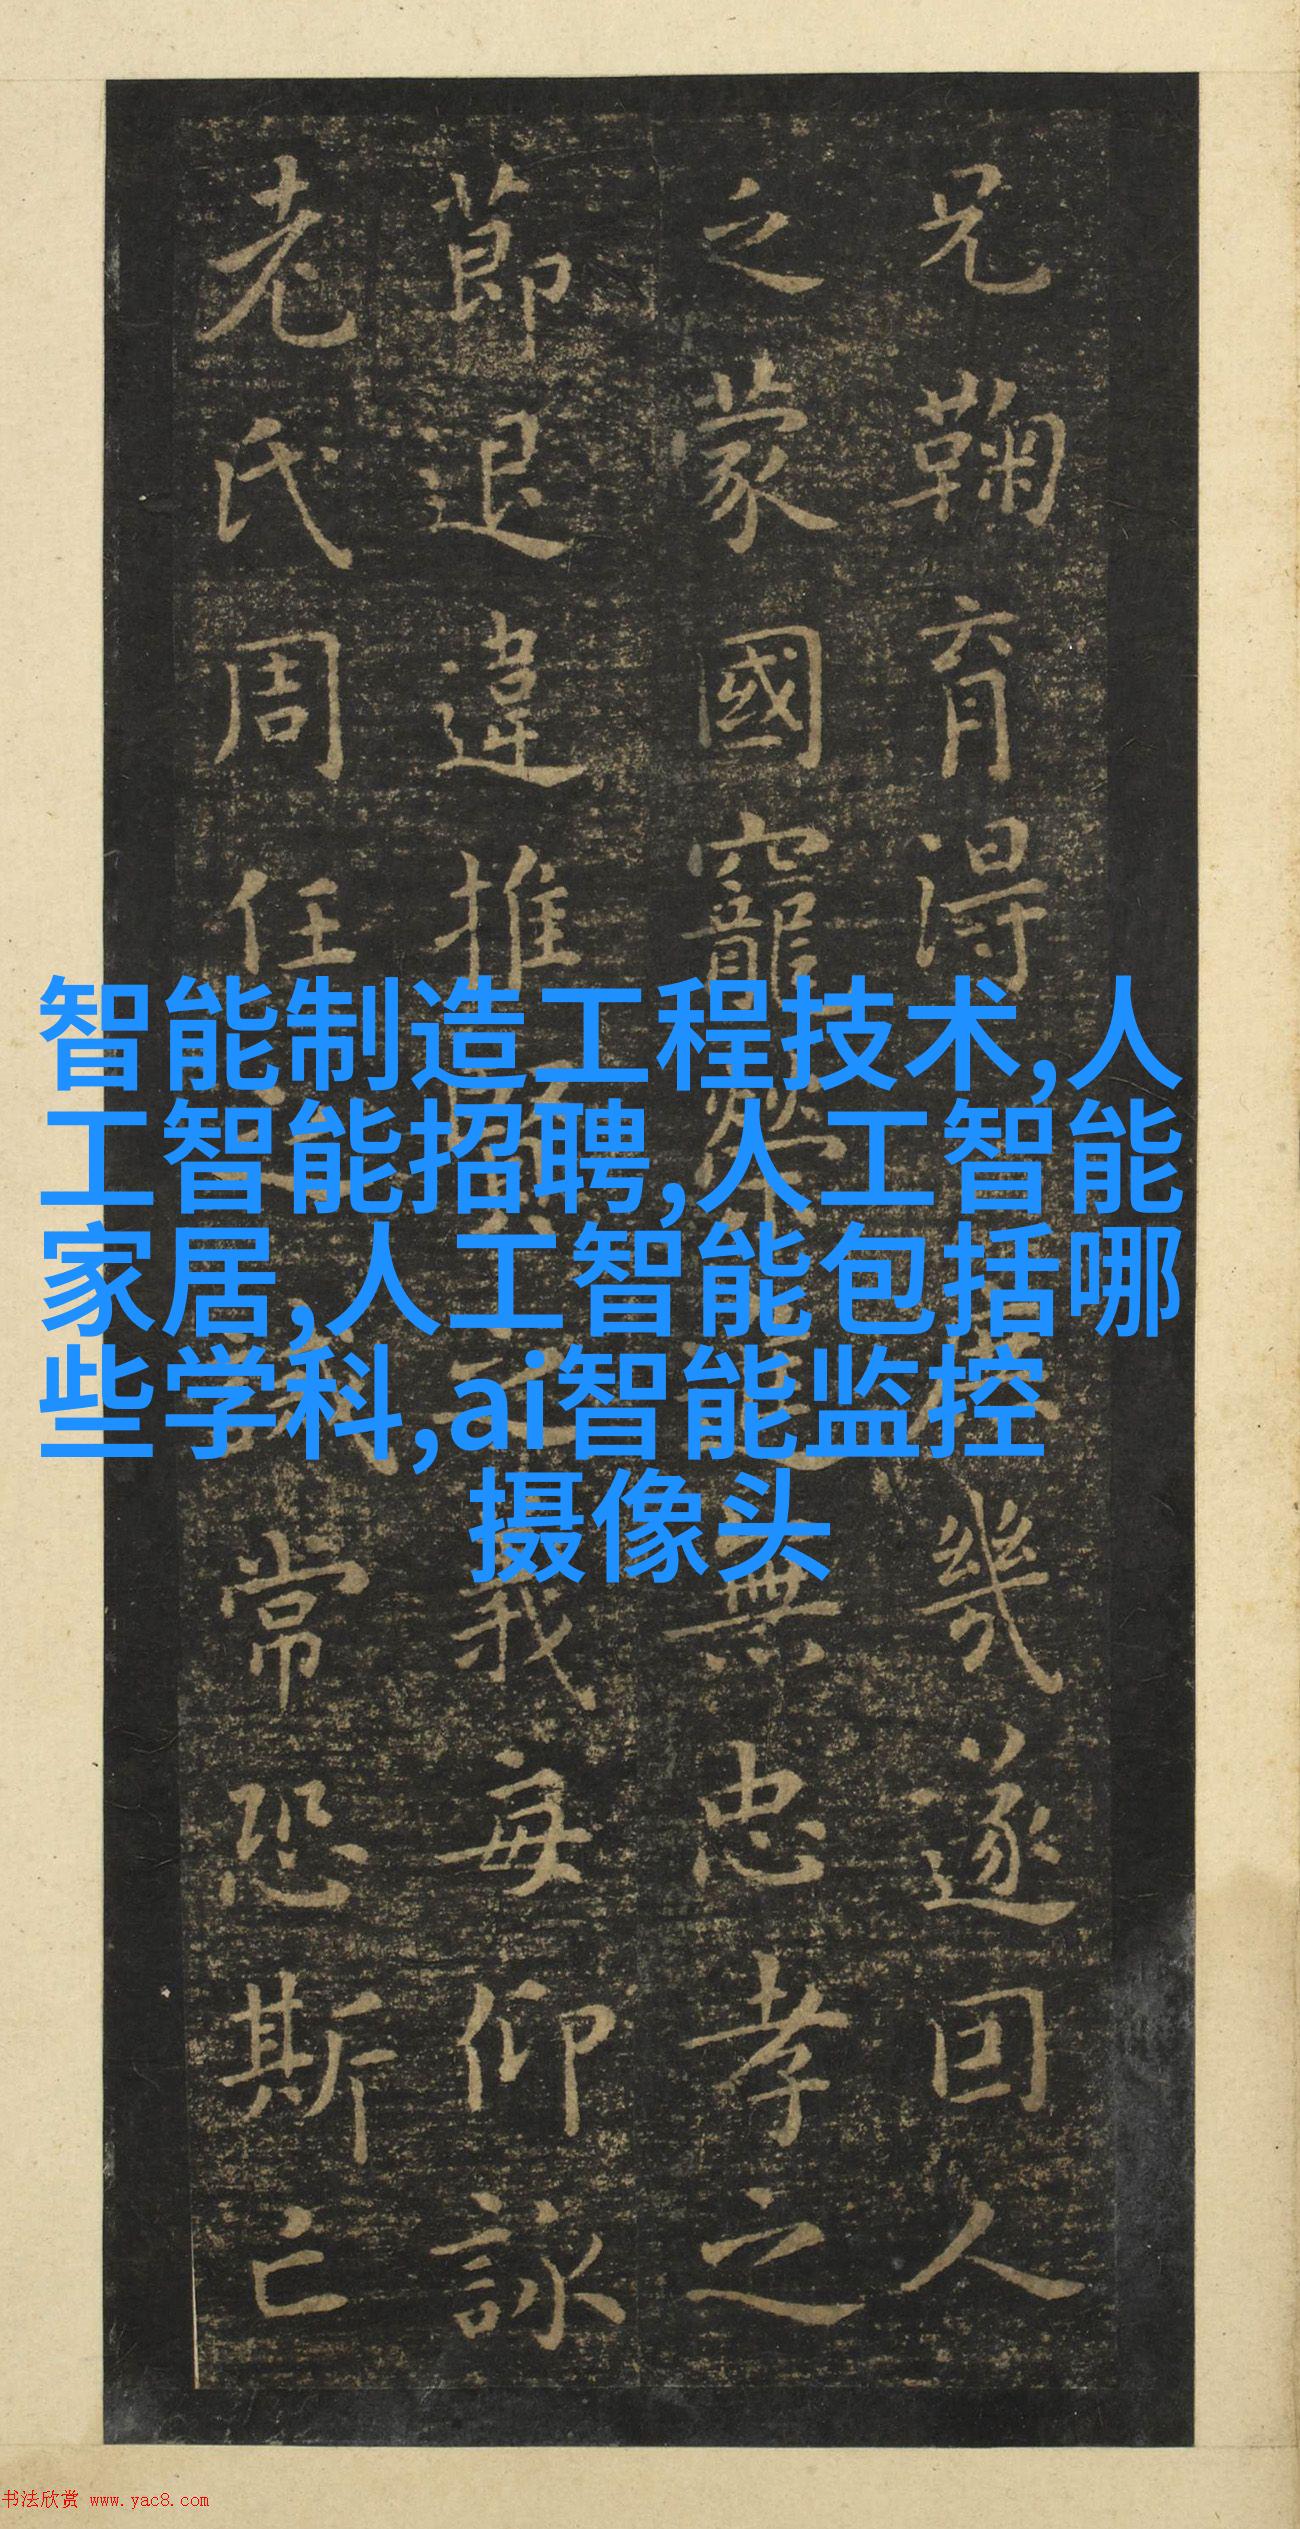 兄鞠育得庶幾遂因人
之蒙國寵榮進無忠孝之
莭退違推賢之義每仰詠
老氏周任之誡常恐斯亡
智能制造工程技术,人
工智能招聘,人工智能
家居,人工智能包括哪
些学科,ai智能监控
摄像头
书法欣赏 www.yac8.com